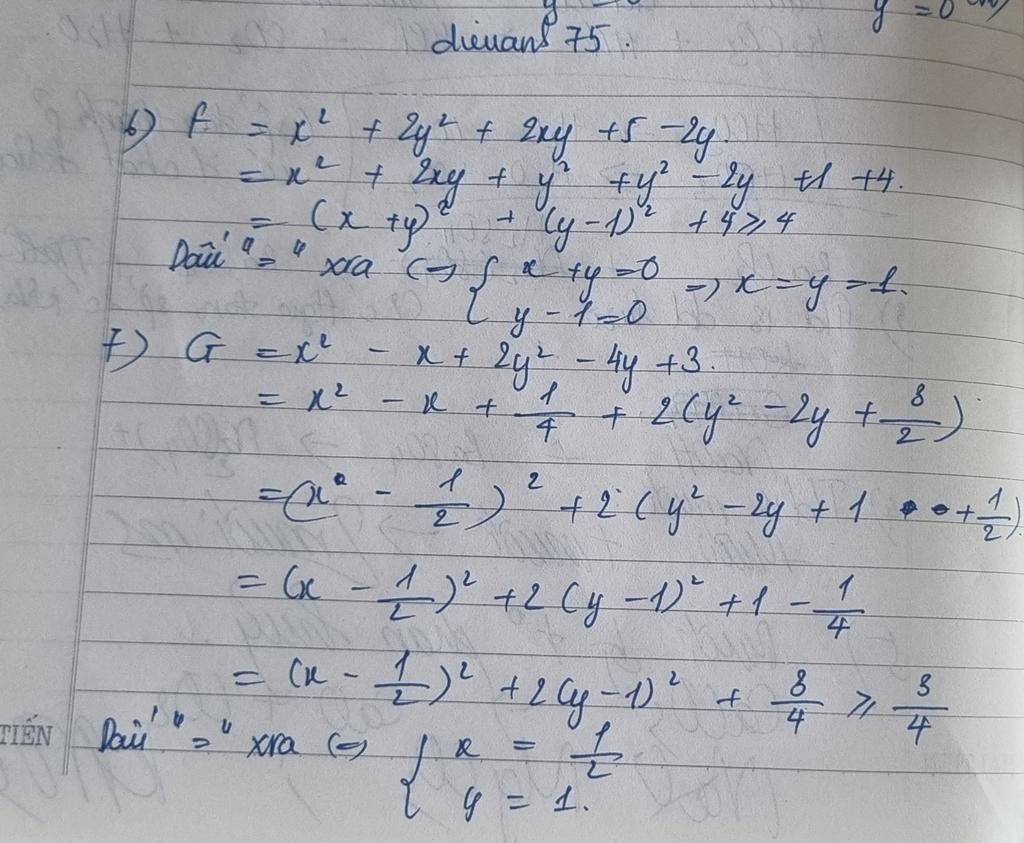 y = 0
dieuans 75.
6) f = x² + 2y² + 2xy + 5 - 2y.
= x² + 2xy + y² + y² - 2y + 1 + 4.
= (x + y)² + (y - 1)² + 4 ⩾ 4
Dấu "=" xra <=> { x + y = 0 => x = y = 1.
y - 1 = 0
7) G = x² - x + 2y² - 4y + 3.
= x² - x + 1/4 + 2(y² - 2y + 3/2)
= (x - 1/2)² + 2(y² - 2y + 1 + 1/2)
= (x - 1/2)² + 2(y - 1)² + 1 - 1/4
= (x - 1/2)² + 2(y - 1)² + 3/4 ⩾ 3/4
TIẾN
Dấu "=" xra <=> { x = 1/2
y = 1.